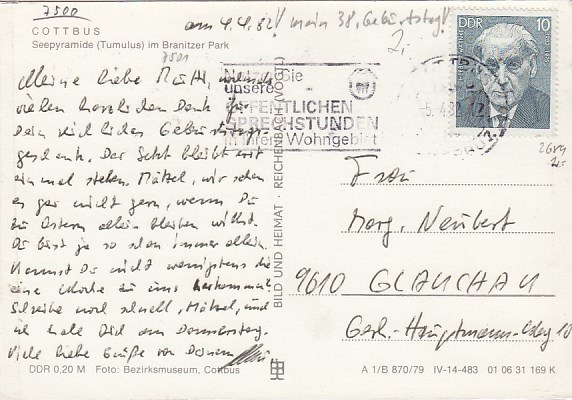 7500
am 4.4.82! mein 38. Geburtstag!
COTTBUS
Seepyramide (Tumulus) im Branitzer Park
2,-
7501
DDR 10
Nutzen Sie
unsere
ÖFFENTLICHEN
SPRECHSTUNDEN
in Ihrem Wohngebiet
-5.4.82
Meine liebe
vielen herzlichen Dank für
Dein reichliches Geburtstags-
geschenk. Der Sekt bleibt erst
einmal stehen. Mätzel, wir sehen
es gar nicht gern, wenn Du
zu Ostern allein bleiben willst.
Du bist ja so schon immer allein.
Kannst Du nicht wenigstens die
eine Woche zu uns
Schreibe noch schnell, Mätzel, und
ich hole Dich am Donnerstag.
Viele liebe Grüße von Deinem
Frau
Marg. Neubert
9610 GLAUCHAU
Gerh.-Hauptmann-Weg 10
BILD UND HEIMAT · REICHENBACH (VOGTL)
DDR 0,20 M Foto: Bezirksmuseum, Cottbus
A 1/B 870/79 IV-14-483 01 06 31 169 K